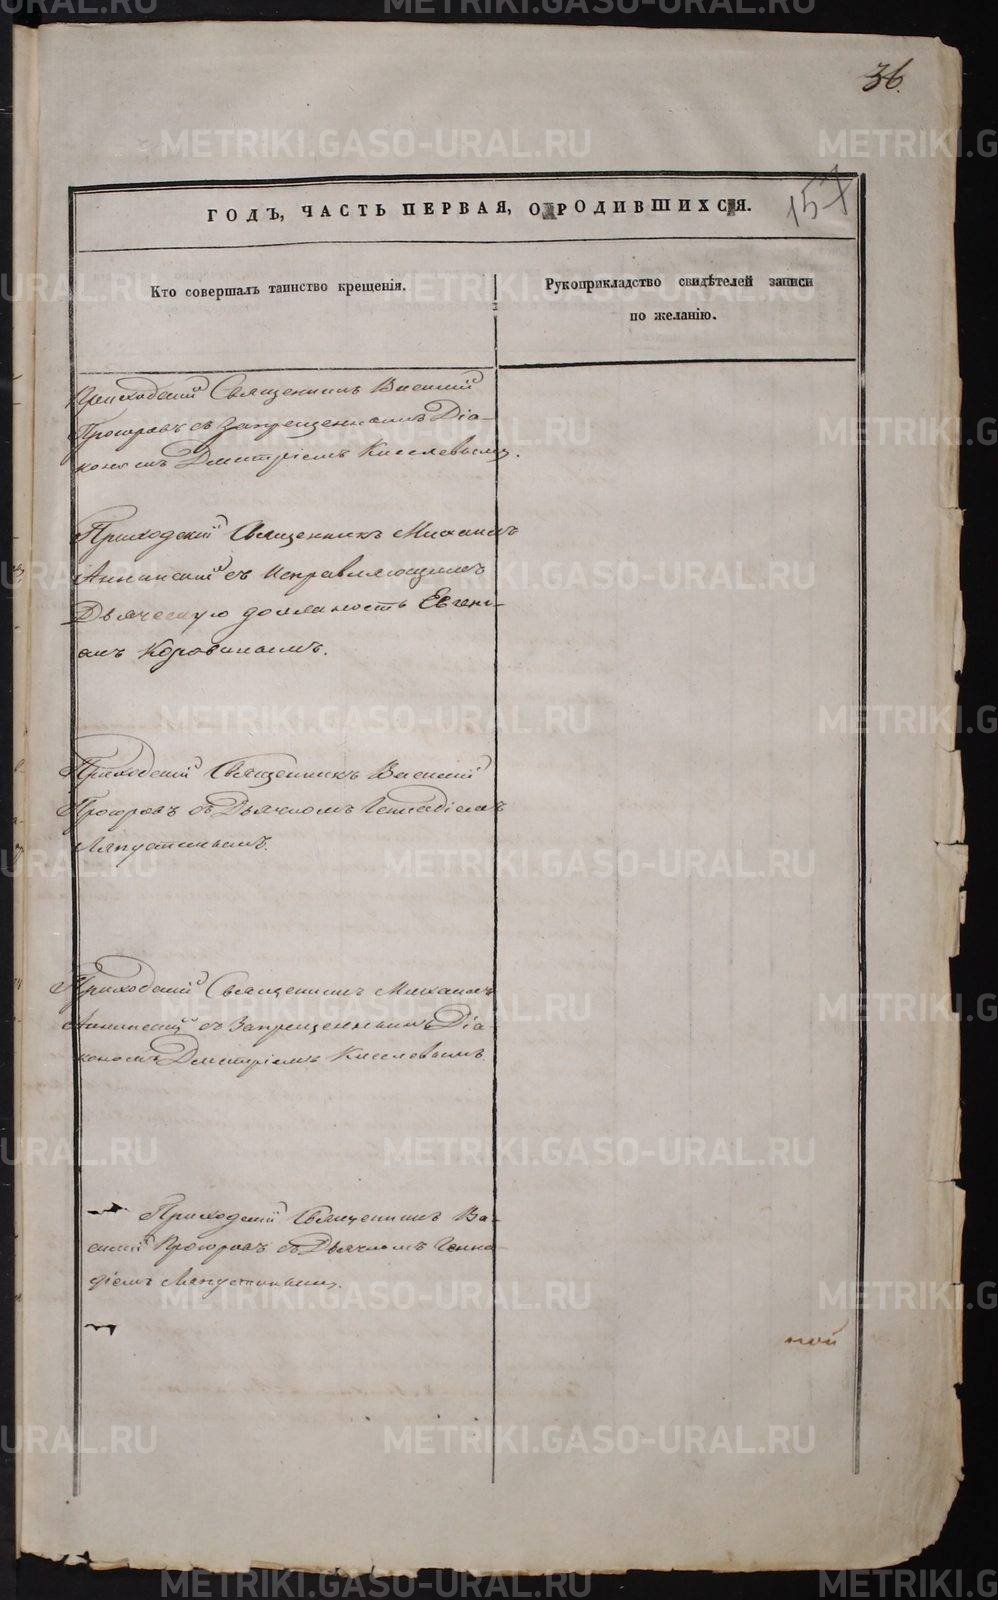 36.
157
ГОДЪ, ЧАСТЬ ПЕРВАЯ, О РОДИВШИХСЯ.
Кто совершалъ таинство крещенія.
Рукоприкладство свидѣтелей записи
по желанію.
Приходскій Священникъ Василій
Прозоровъ съ Запрещеннымъ Діа-
кономъ Дмитріемъ Киселевымъ.
Приходскій Священникъ Михаилъ
Аннинскій съ Исправляющимъ
Дьяческую должность Евгені-
емъ Коровинымъ.
Приходскій Священникъ Василій
Прозоровъ съ Дьячкомъ Геннадіемъ
Ляпустинымъ.
Приходскій Священникъ Михаилъ
Аннинскій съ Запрещеннымъ Діа-
кономъ Дмитріемъ Киселевымъ
Приходскій Священникъ Ва-
силій Прозоровъ съ Дьячкомъ Генна-
діемъ Ляпустинымъ.
ной
METRIKI.GASO-URAL.RU